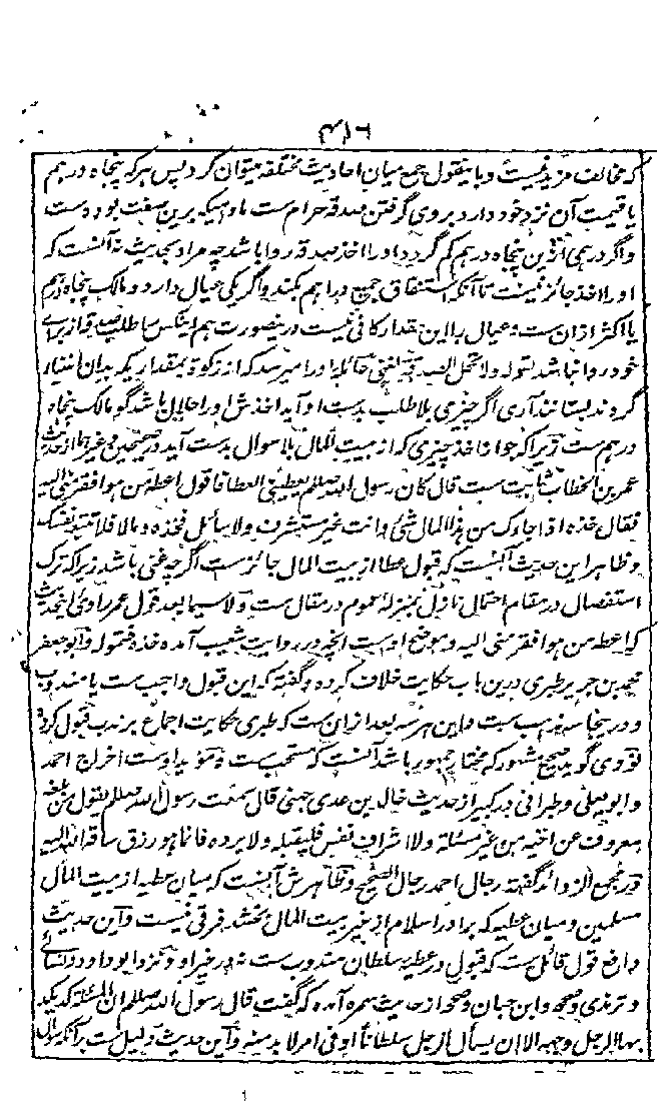 ۴۱۶
که مخالف مزید نیست و باینقول جمع میان احادیث مختلفه میتوان کرد پس هر که پنجاه درهم
یا قیمت آن نزد خود دارد بروی گرفتن صدقه حرام ست مادامیکه برین صفت بود دست
واگر درهمی ازین پنجاه درهم کم گردد او را اخذ صدقه روا باشد چه مراد بحدیث نه آنست که
او را اخذ جائز نیست تا آنکه استنفاق جمیع دراهم بکند واگر یکی عیال دارد و مالک پنجاه درهم
یا اکثر ازان ست و عیال را این مقدار کافی نیست درینصورت هم اینکس را طلب صدقه از برای
خود روا نباشد لقوله ولا تحل الصدقة لغنی عائله او را میرسد که از زکوة بمقداریکه بدان اغنیاء
گردند بستانند آری اگر چیزی بلا طلب بدست او آید اخذش او را حلال باشد گو مالک پنجاه
درهم ست زیرا که جواز اخذ چیزی که از بیت المال بلا سوال بدست آید در صحیحین و غیرهما از حدیث
عمر بن الخطاب ثابت ست قال کان رسول الله صلعم یعطینی العطا فاقول اعطه من هو افقر منی الیه
فقال خذه اذا جاءک من هذا المال شئ وانت غیر مستشرف ولا سائل فخذه ومالا فلا تتبعه نفسک
وظاهر این حدیث آنست که قبول عطا از بیت المال جائز ست اگرچه غنی باشد زیرا که ترک
استفصال در مقام احتمال نازل بمنزله عموم در مقال ست ولا سیما بعد قول عمر راوی الحدیث
که اعطه من هو افقر منی الیه وموضح اوست انچه در روایت شعیب آمده خذه فتموله وابوجعفر
محمد بن جریر طبری درین باب حکایت خلاف کرده و گفته که این قبول واجب ست یا مندوب
و درینجا سه مذهب ست و این هر سه بعد ازان ست که طبری حکایت اجماع بر ندب قبول کرده
نووی گوید صحیح مشهور که مختار جمهور باشد آنست که مستحب ست و مؤید اوست اخراج احمد
وابو یعلی وطبرانی در کبیر از حدیث خالد بن عدی جهنی قال سمعت رسول الله صلعم یقول من بلغه
معروف عن اخیه من غیر مسئلة ولا اشراف نفس فلیقبله ولا یرده فانما هو رزق ساقه الله الیه
ودر مجمع الزوائد گفته رجال احمد رجال الصحیح وظاهرش آنست که میان عطیه از بیت المال
مسلمین ومیان عطیه که برادر اسلام از غیر بیت المال بخشد فرقی نیست و این حدیث
دافع قول قائل ست که قبول در عطیه سلطان مندوب ست نه در غیر او ونزد ابوداود ونسائی
وترمذی وصححه وابن حبان وصححه از حدیث سمره آمده که گفت قال رسول الله صلعم ان المسئلة کد یکد
بها الرجل وجهه الا ان یسأل الرجل سلطانا او فی امر لا بد منه واین حدیث دلیل ست بر آنکه سوال